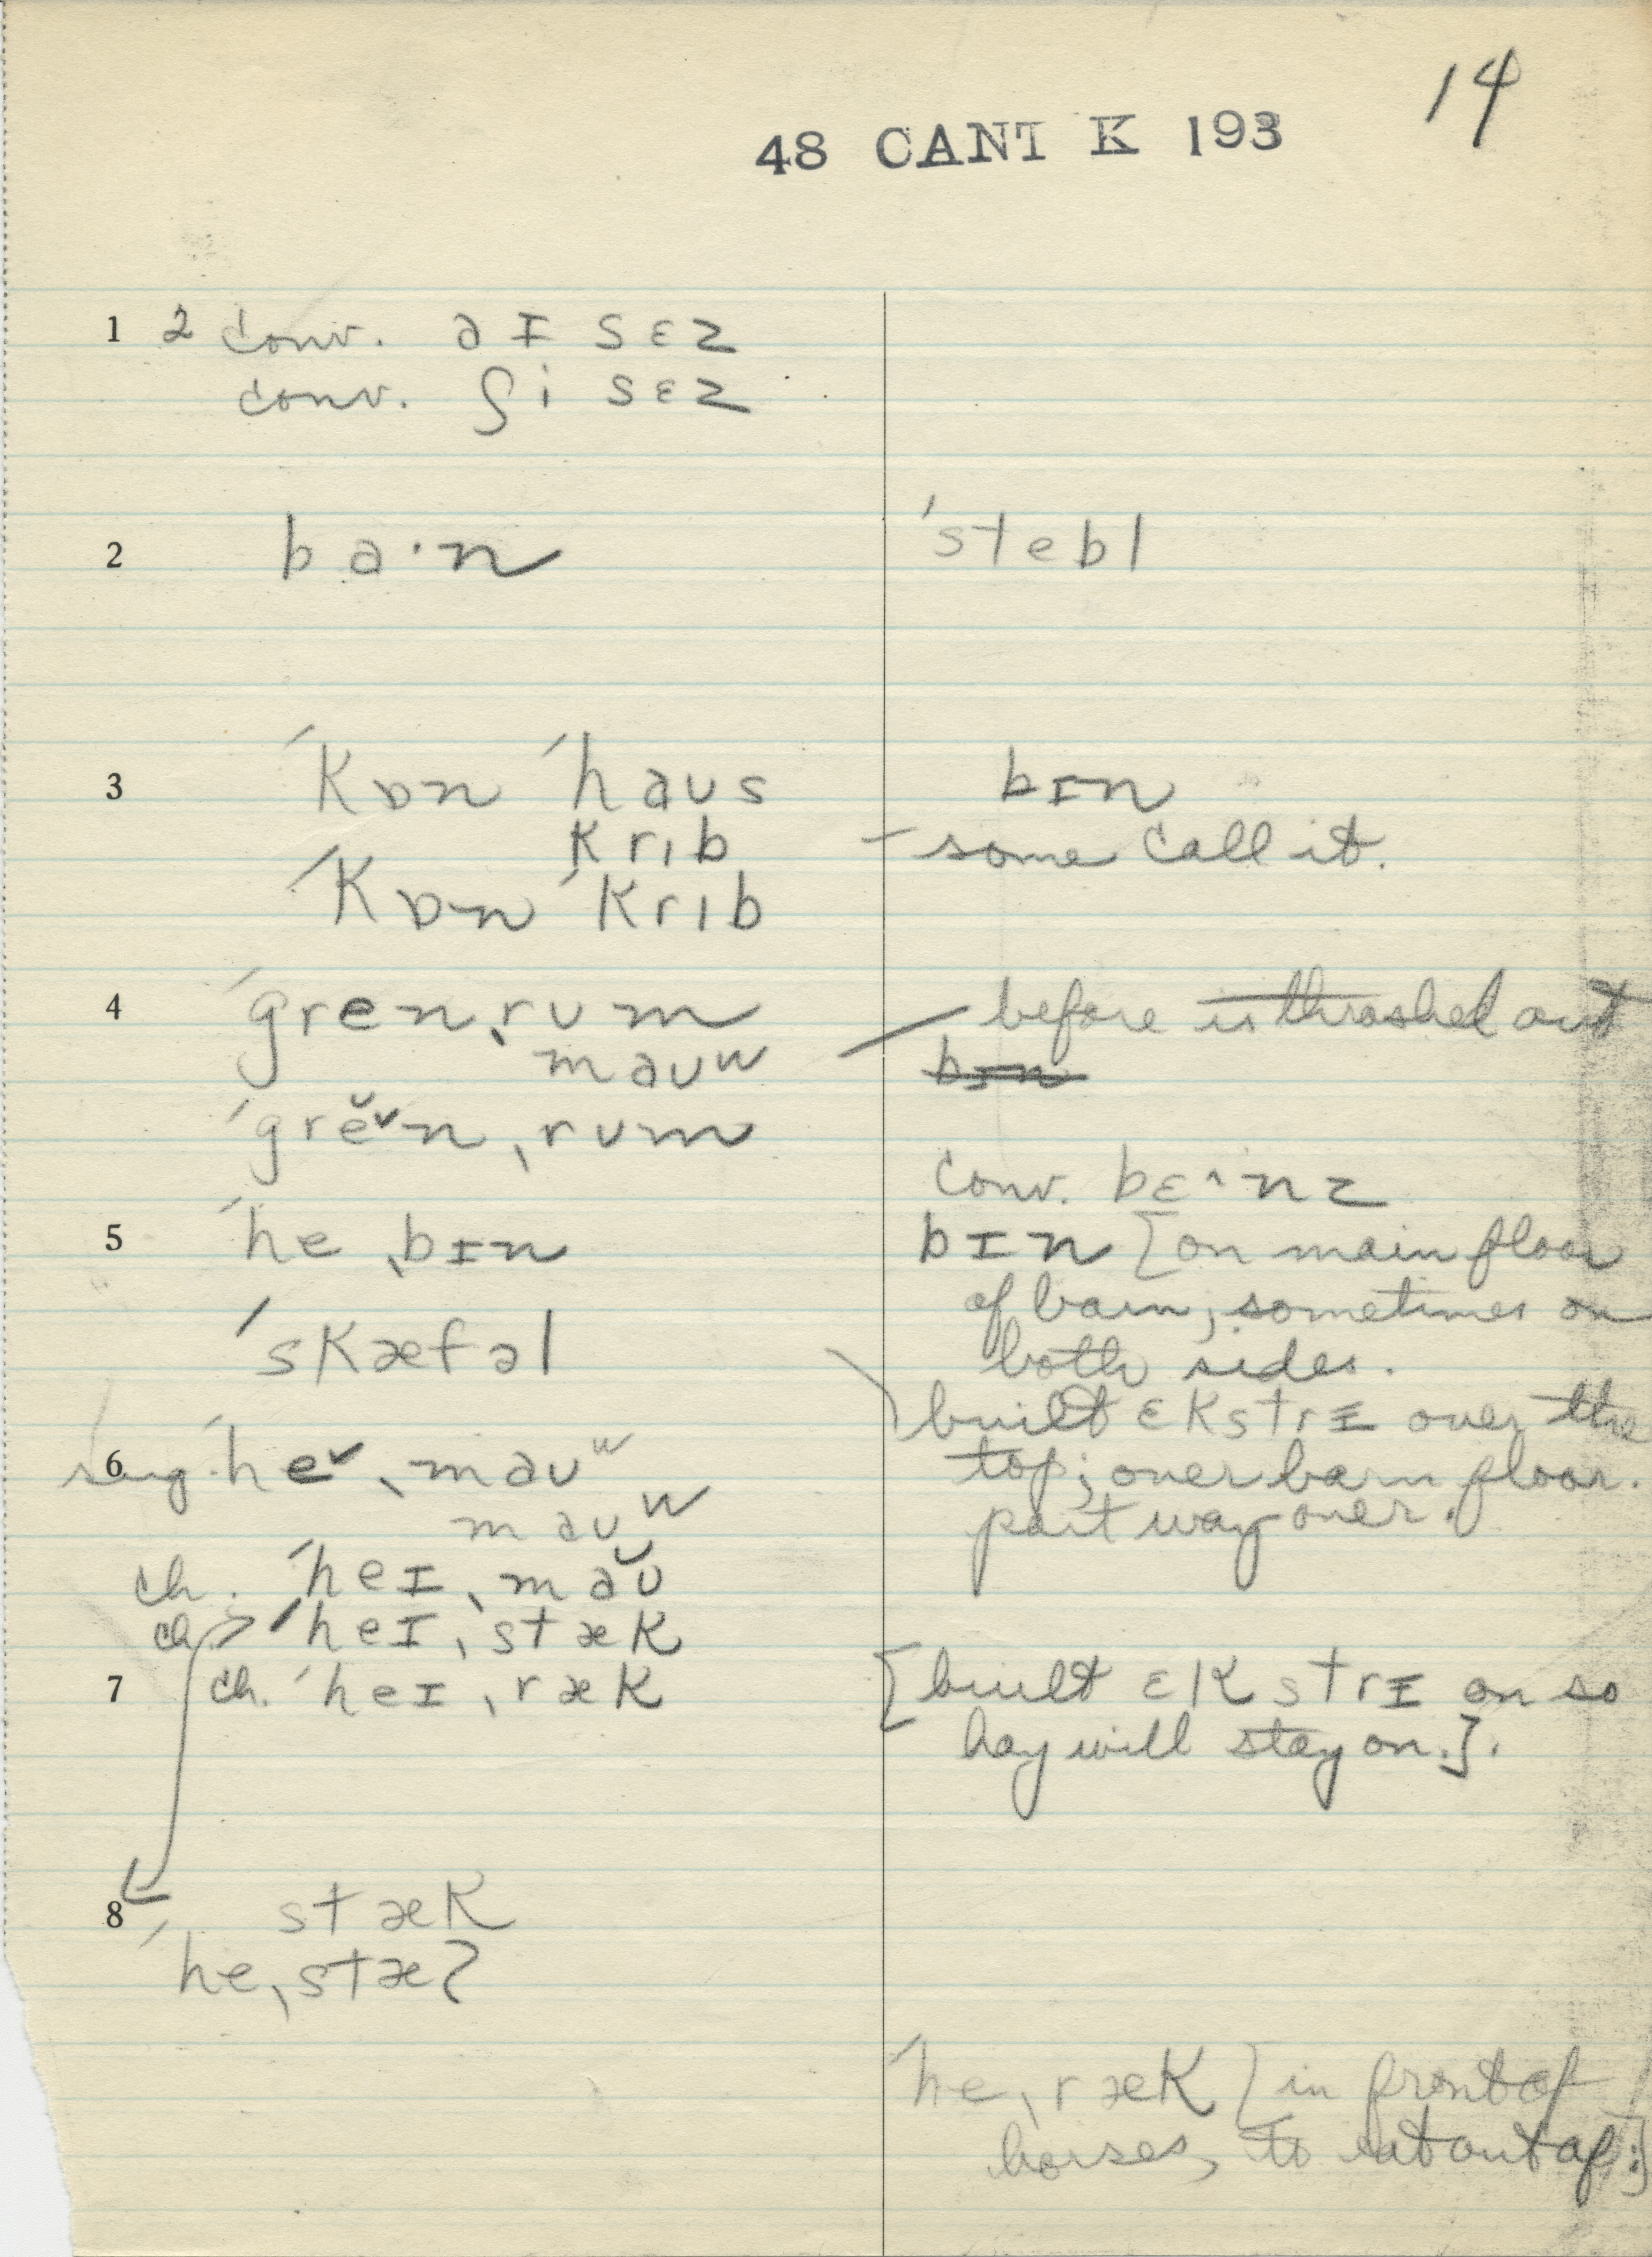 14
48 CANT K 193
1 2 conv. aɪ sɛz
conv. ʃi sɛz
2 ba·n ˈstebl
3 ˈkɒn ˈhaʊs bɪn
krɪb – some call it.
ˈkɒn ˈkrɪb
4 ˈgren ˌrʊm – before is thrashed out
maʊw bɪn
ˈgrĕ˅n ˌrʊm
conv. bɛ^·nz
5 ˈhe ˌbɪn bɪn [on main floor
of barn; sometimes on
ˈskæfəl both sides.
built ɛkstrɪ over the
6 sug. ˈhe˅ ˌmaʊʷ top; over barn floor.
maʊʷ part way over.
ch. ˈheɪ ˌmaʊ̆
ch. ˈheɪ ˌstæk
7 ch. ˈheɪ ˌræk [built ɛkstrɪ on so
hay will stay on.].
8 stæk
ˈhe ˌstæʔ
ˈhe ˌræk [in front of
horses, to eat out of.]